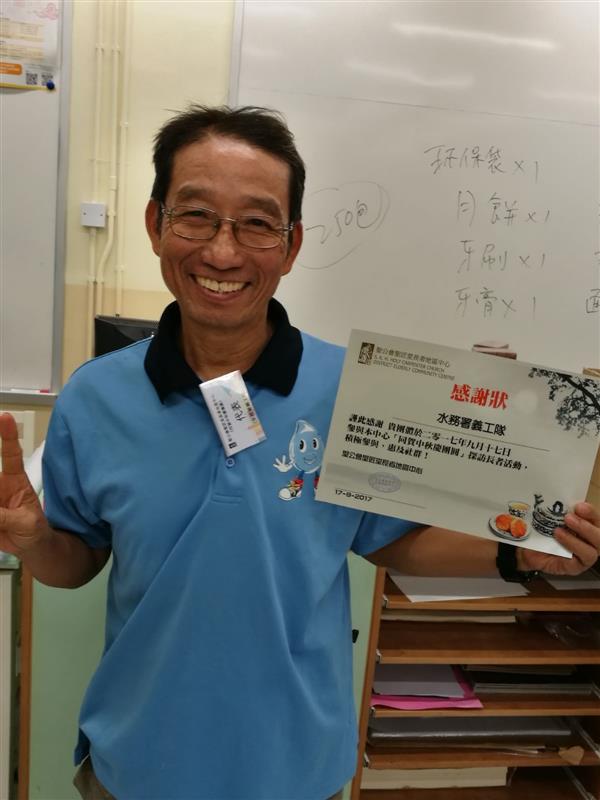 环保袋 x1
月餅 x1
牙刷 x1
牙膏 x1
250包
代表
聖公會聖匠堂長者地區中心
S. K. H. HOLY CARPENTER CHURCH
DISTRICT ELDERLY COMMUNITY CENTRE
感謝狀
水務署義工隊
謹此感謝 貴團體於二零一七年九月十七日
參與本中心「同賀中秋慶團圓」探訪長者活動，
積極參與，惠及社群！
聖公會聖匠堂長者地區中心
17-9-2017